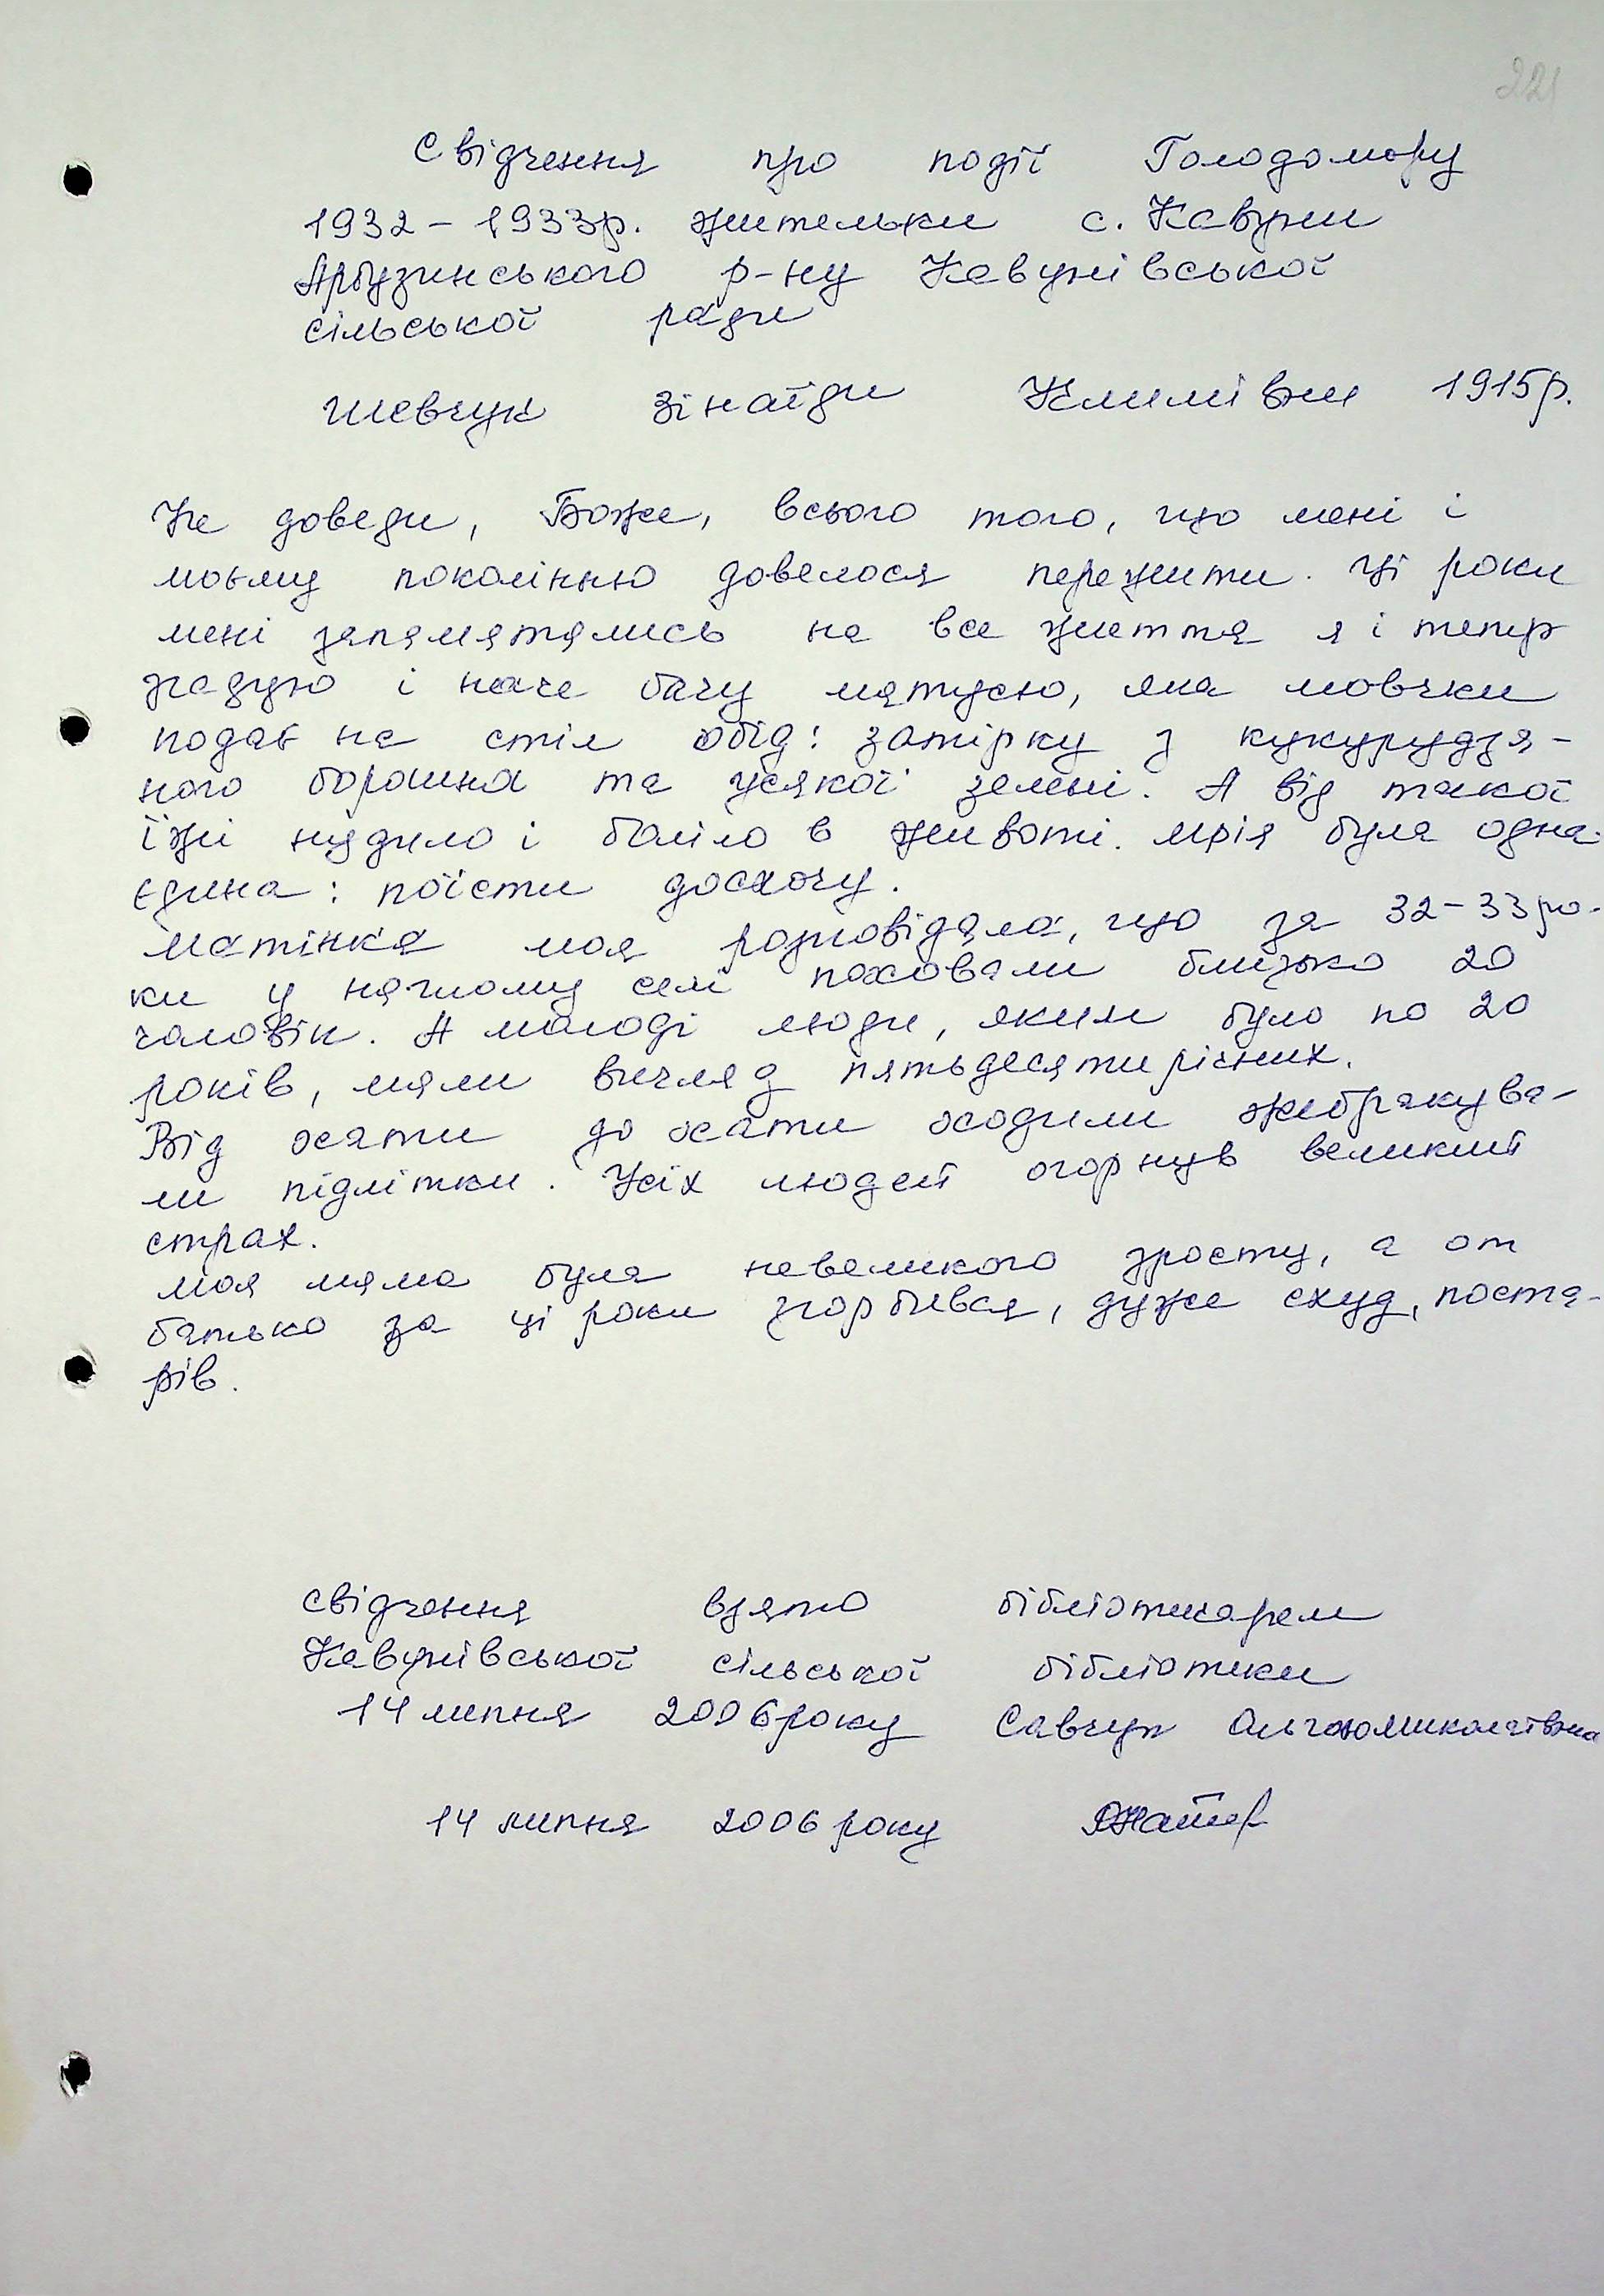 221
Свідчення про події Голодомору
1932 - 1933р. жительки с. Кавуни
Арбузинського р-ну Кавунівської
сільської ради
Шевчук Зінаїди Климівни 1915р.
Не доведи, Боже, всього того, що мені і
моєму поколінню довелося пережити. Ці роки
мені запамятались на все життя я і тепер
згадую і наче бачу матусю, яка мовчки
подає на стіл обід: затірку з кукурудзя-
ного борошна та усякої зелені. А від такої
їжі нудило і боліло в животі. Мрія була одна-
єдина: поїсти досхочу.
Матінка моя розповідала, що за 32-33 ро-
ки у нашому селі поховали близько 20
чоловік. А молоді люди, яким було по 20
років, мали вигляд пятьдесятирічних.
Від хати до хати ходили жебракува-
ли підлітки. Усіх людей огорнув великий
страх.
Моя мама була невеликого зросту, а от
батько за ці роки згорбився, дуже схуд, поста-
рів.
Свідчення взято бібліотекарем
Кавунівської сільської бібліотеки
14 липня 2006 року Савчук Ольгою Миколаївна
14 липня 2006 року